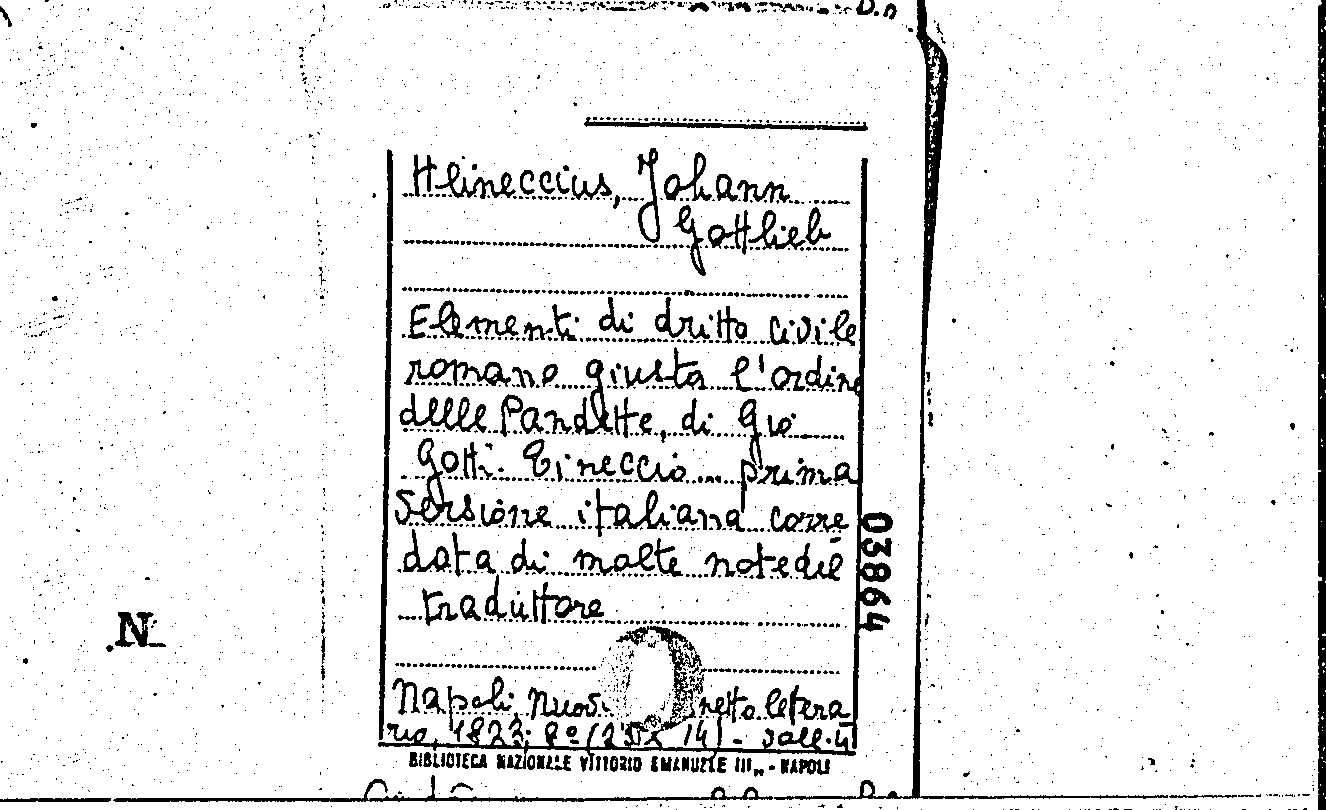 Heineccius, Johann
Gottlieb
Elementi di dritto civile
romano giusta l'ordine
delle Pandette, di Gio
Gotti. Eineccio... prima
versione italiana corre
data di molte note del
traduttore
Napoli, Nuovo netto lettera
rio, 1823; 8º ( 14) - Sall.4
BIBLIOTECA NAZIONALE VITTORIO EMANUELE III,, - NAPOLI
03864
N